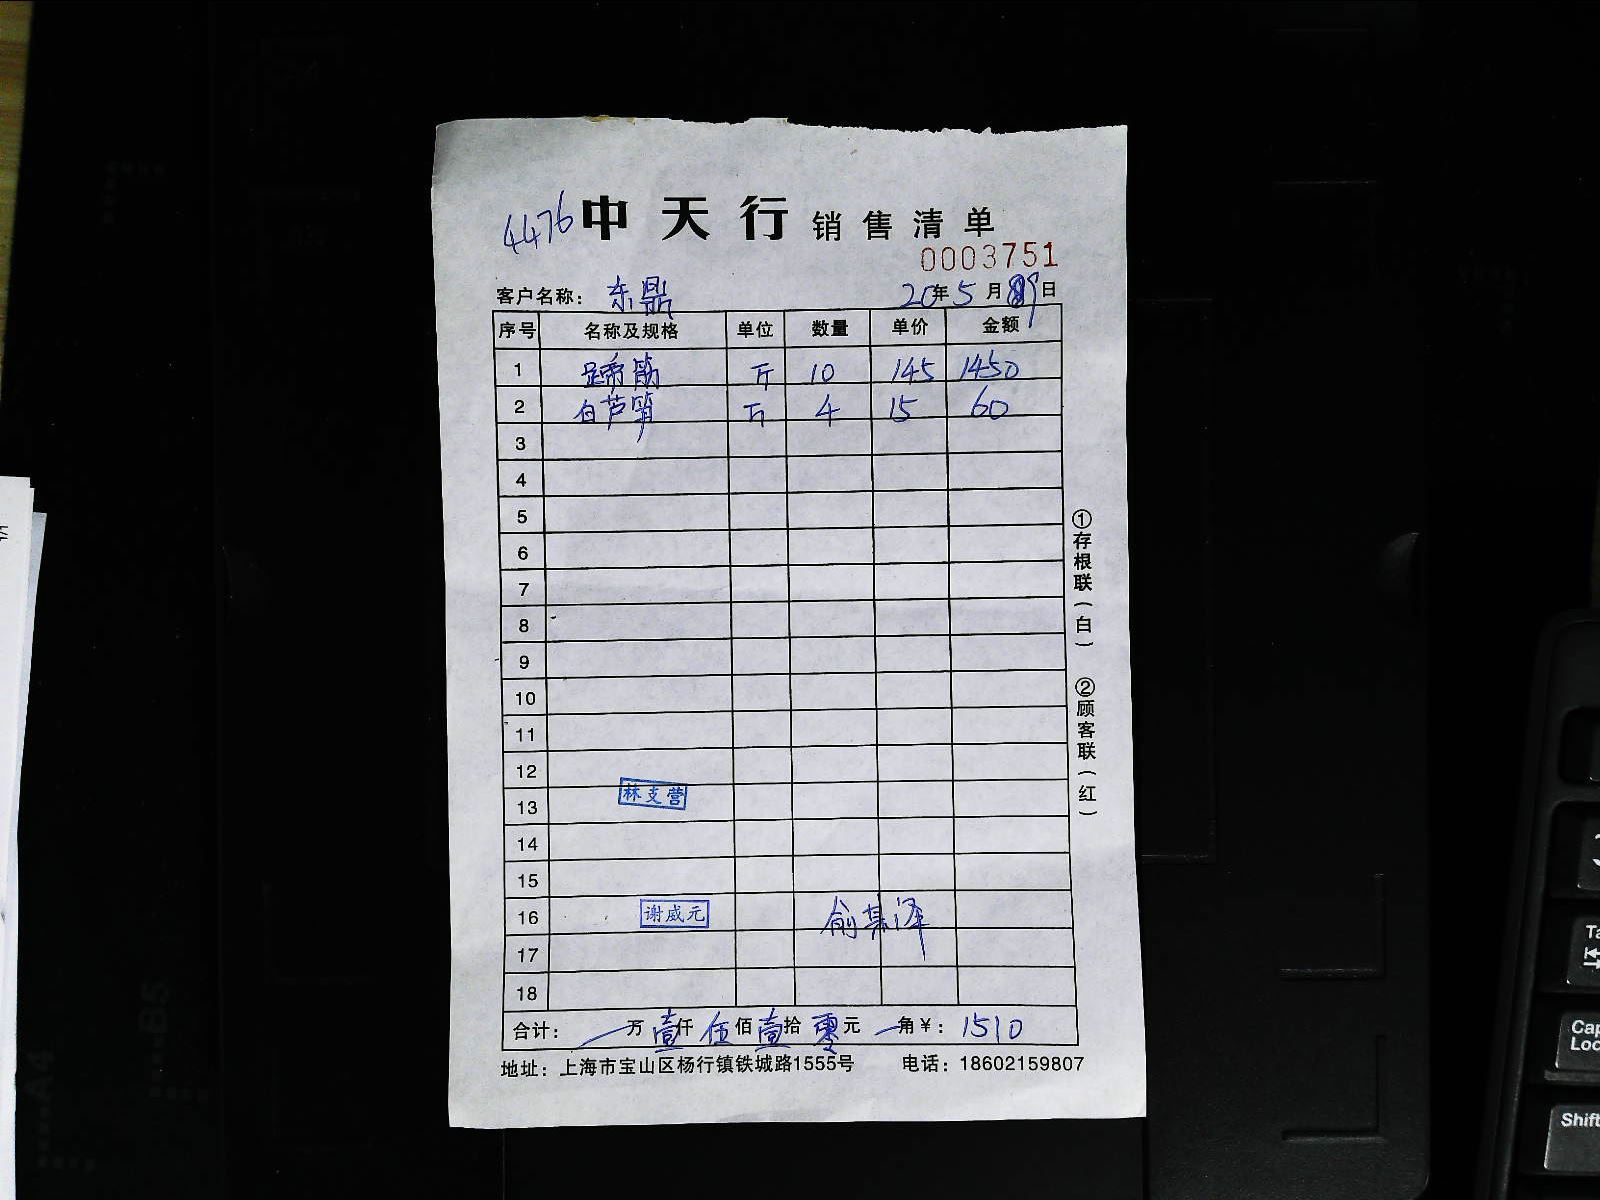 4476 中天行 销售清单
0003751
客户名称： 东鼎 20年5月9日
序号 名称及规格 单位 数量 单价 金额
1 蹄筋 斤 10 145 1450
2 白芦笋 斤 4 15 60
3
4
5
6
7
8
9
10
11
12
13 林支营
14
15
16 谢威元 俞慕泽
17
18
合计： 万壹仟伍佰壹拾零元 角￥：1510
地址：上海市宝山区杨行镇铁城路1555号 电话：18602159807
①存根联（白） ②顾客联（红）
A4
B5
Caps
Lock
Shift